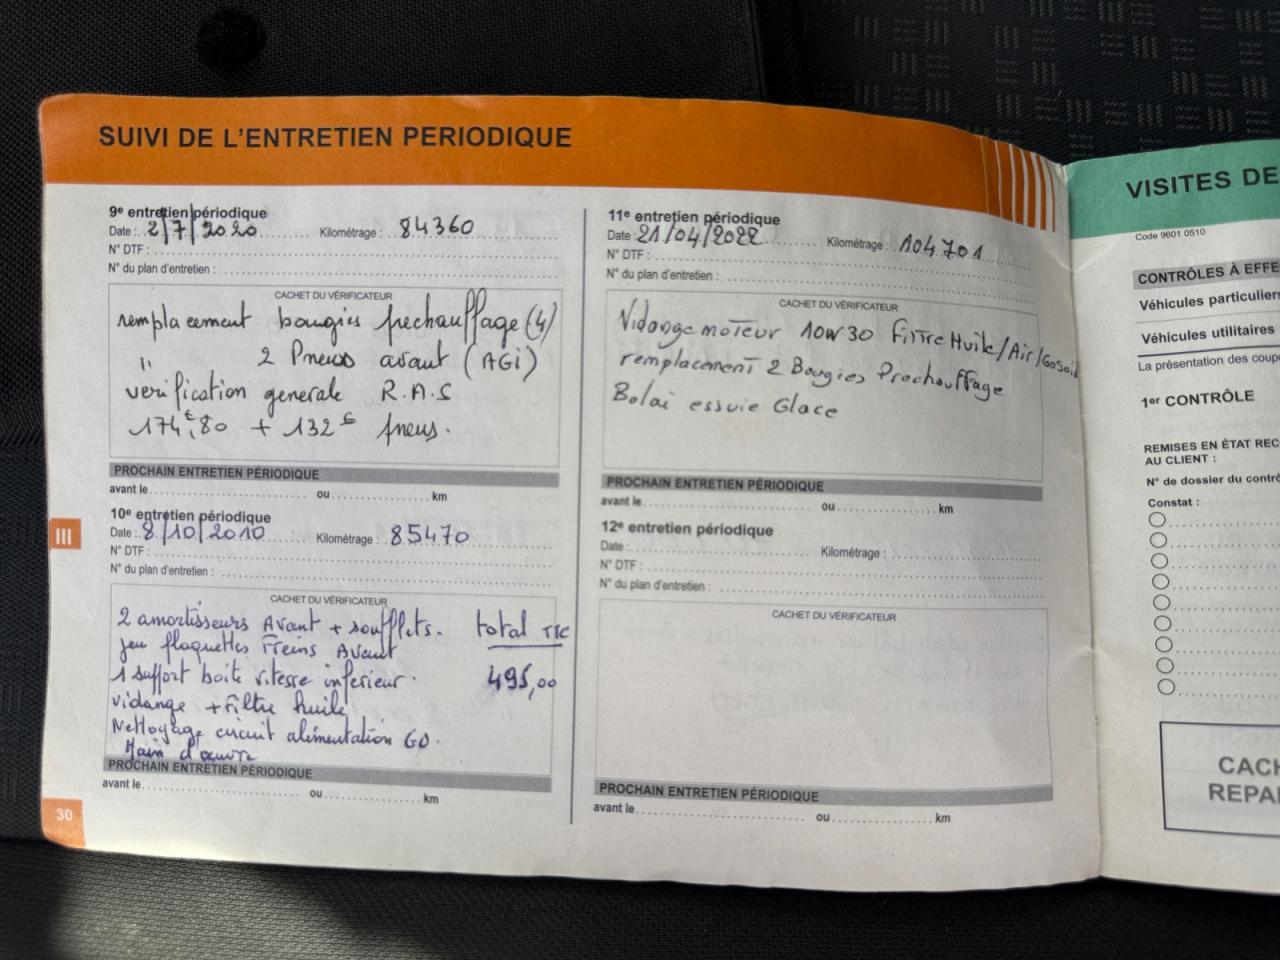 SUIVI DE L'ENTRETIEN PERIODIQUE
9e entretien périodique
Date : 2/7/2020 Kilométrage : 84360
N° DTF :
N° du plan d'entretien :
CACHET DU VÉRIFICATEUR
remplacement bougies prechauffage (4)
" 2 Pneus avant (AGi)
verification generale R.A.S
174€,80 + 132€ pneus.
PROCHAIN ENTRETIEN PÉRIODIQUE
avant le ou km
10e entretien périodique
Date : 8/10/2010 Kilométrage : 85470
N° DTF :
N° du plan d'entretien :
CACHET DU VÉRIFICATEUR
2 amortisseurs Avant + soufflets. total TTC
jeu plaquettes Freins Avant
1 support boite vitesse inferieur. 495,00
vidange + Filtre huile
Nettoyage circuit alimentation GO.
Main d'œuvre
PROCHAIN ENTRETIEN PÉRIODIQUE
avant le ou km
III
30
11e entretien périodique
Date : 21/04/2022 Kilométrage : 104701
N° DTF :
N° du plan d'entretien :
CACHET DU VÉRIFICATEUR
Vidange moteur 10W30 Filtre Huile/Air/Gosoil
remplacement 2 Bougies Prochauffage
Bolai essuie Glace
PROCHAIN ENTRETIEN PÉRIODIQUE
avant le ou km
12e entretien périodique
Date : Kilométrage :
N° DTF :
N° du plan d'entretien :
CACHET DU VÉRIFICATEUR
PROCHAIN ENTRETIEN PÉRIODIQUE
avant le ou km
VISITES DE
Code 9601 0510
CONTRÔLES À EFFE
Véhicules particuliers
Véhicules utilitaires
La présentation des coup
1er CONTRÔLE
REMISES EN ÉTAT REC
AU CLIENT :
N° de dossier du contrô
Constat :
CACH
REPA